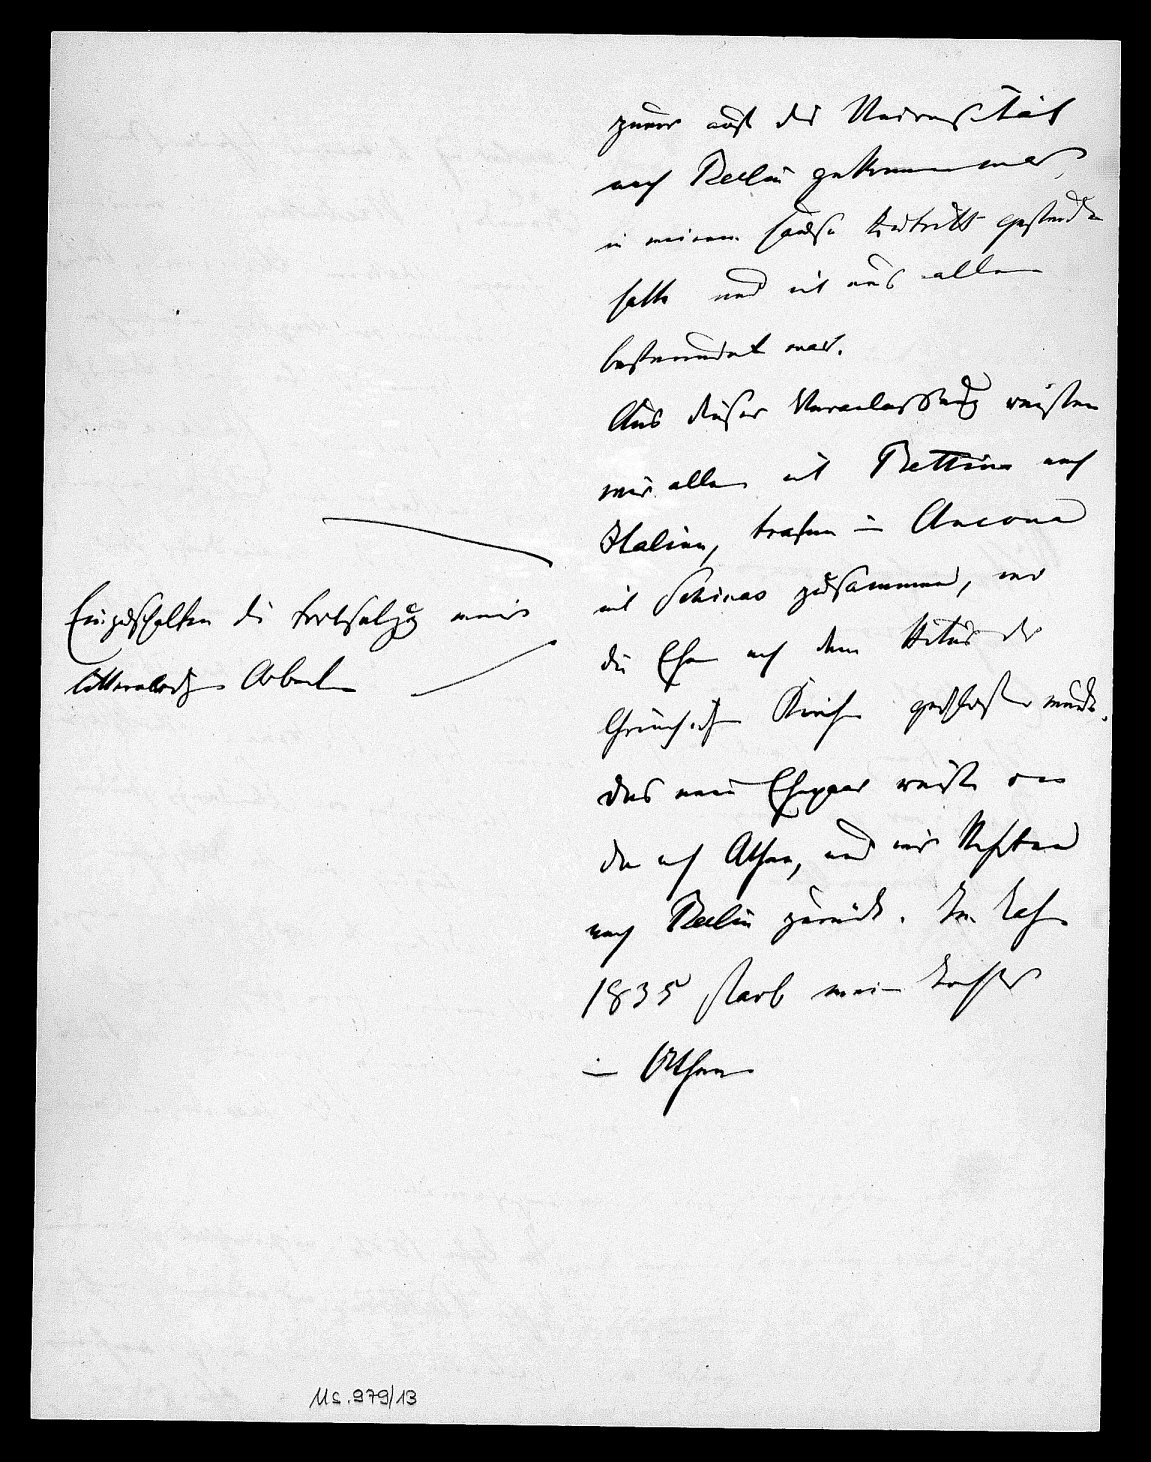 zuvor auf die Universität
nach Berlin gekommen war,
in meinem Hause Zutritt gefunden
hatte und mit uns allen
befreundet war.
Aus dieser Veranlassung reisten
wir alle mit Bettina nach
Italien, trafen in Ancona
mit Schinas zusammen, wo
die Ehe nach dem Ritus der
Griechischen Kirche geschlossen wurde.
Das neue Ehepaar reiste von
da nach Athen, und wir
nach Berlin zurück. Im Jahre
1835 starb meine Tochter
in Athen
Einzuschalten die Fortsetzung meiner
litterarischen Arbeiten
Ms. 979/13